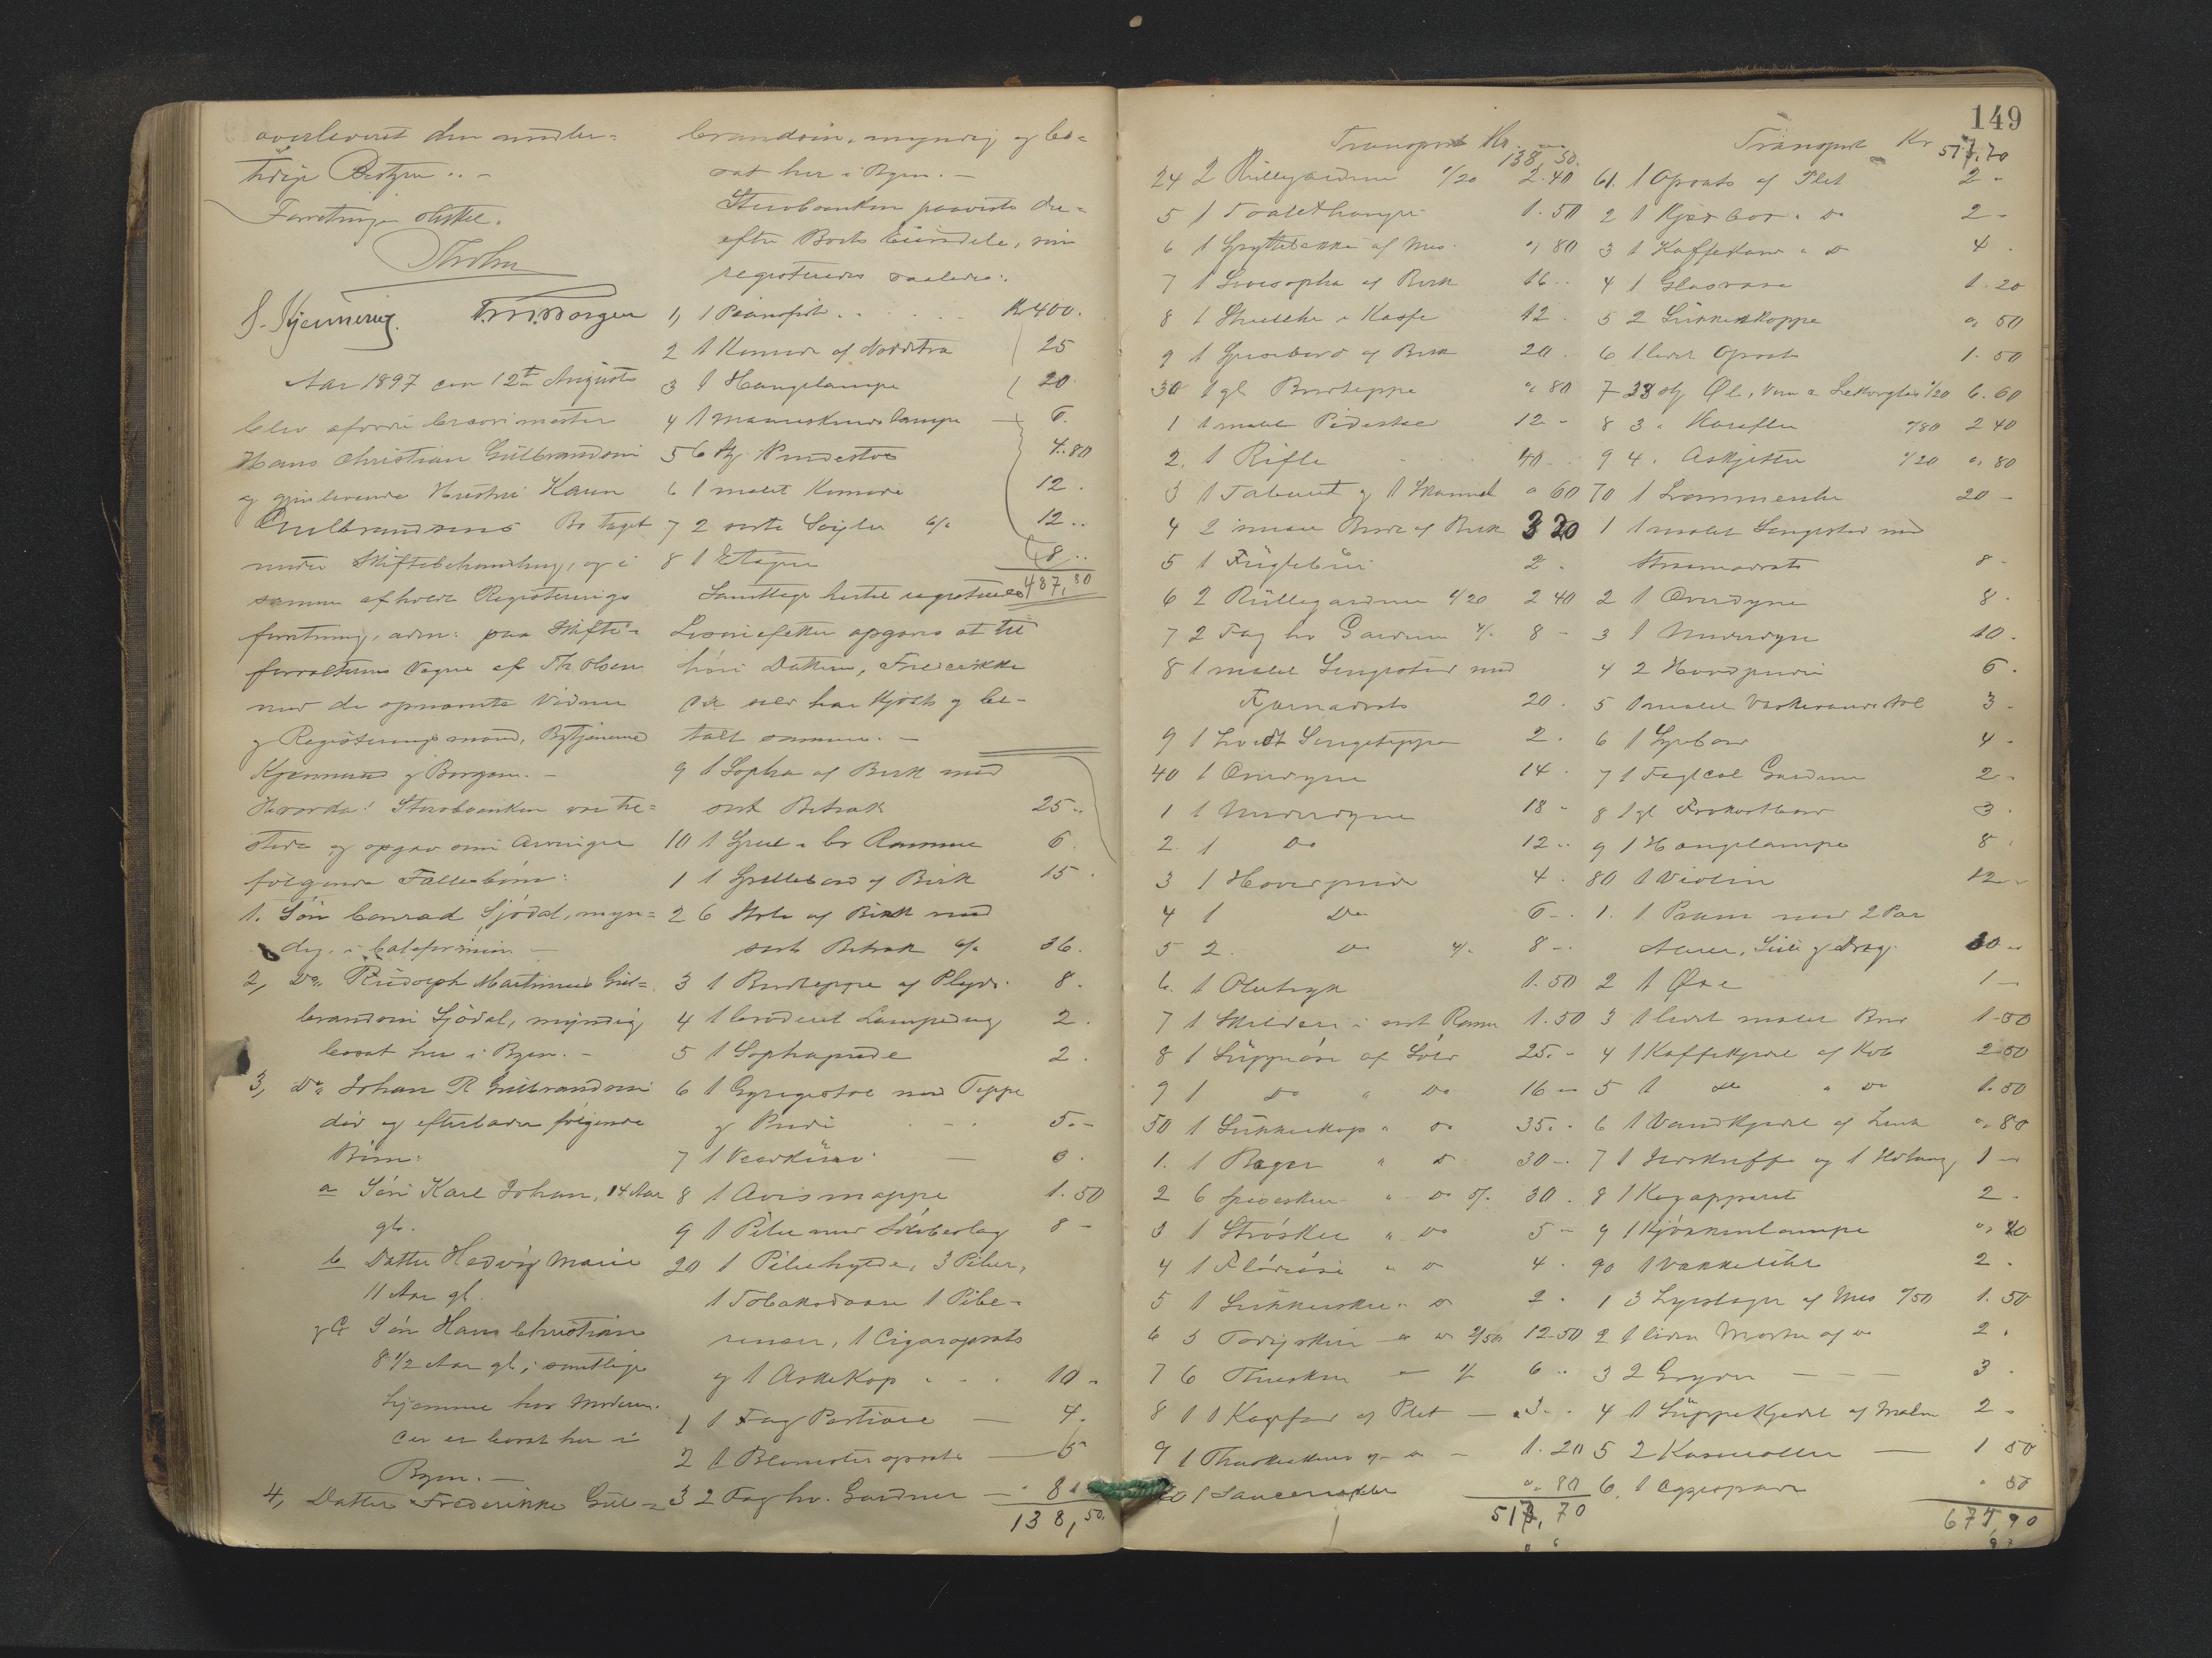 overleveret den
Forretningen sluttet.
ThOlsen
S. Kjennerud. T. M. Borgen
Aar 1897 den 12te Augusti
blev afdøde
Hans Christian Gulbrandsen
og gjenlevende Hustru Karen
Gulbrandsens Bo taget
under Skiftebehandling, og i
samme afholdt Registrerings
forretning, adm: paa Skifte-
forvalterens Vegne af Th Olsen
med de opnævnte Vidner
og Registreringsmænd, Bytjenerne
Kjennerud og Borgen. -
Hvorda! Stervboenken var til-
stede og opgav som Arvinger
følgende Fællesbørn:
1. Søn Conrad Sjødal, myn-
dig, i Californien -
2, Do. Rudolph Martinius Gul-
brandsen Sjødal, myndig
bosat her i Byen. -
3, Do. Johan R Gulbrandsen
død og efterlader følgende
Børn:
a Søn Karl Johan, 14 Aar
gl.
b Datter Hedvig Marie
11 Aar gl.
og c Søn Hans Christian
8 1/2 Aar gl, samtlige
hjemme hos Moderen
der er bosat her i
Byen. -
4, Datter Frederikke Gul-
brandsen, myndig og bo-
sat her i Byen. -
Stervboenken paaviste der-
efter Boets Eiendele, som
registreredes saaledes:
1, 1 Pianoforte . . . Kr 400.
2 1 Komode af Nøddetræ 25
3 1 Hængelampe 20
4 1 Maaneskinslampe 6.
5 6 St. Vindestole 4.80
6 1 malet Komode 12.
7 2 sorte Søiler 6/- 12..
8 1 Etagere 8..
487,80
Samtlige hertil registrerede
Løsøreeffekter opgaves at til-
høre Datteren, Frederikke
der selv har kjøbt og be-
talt samme. -
9 1 Sopha af Birk med
sort Betræk 25..
10 1 Speil i br Ramme 6.
1 1 Spillebord af Birk 15.
2 6 Stole af Birk med
sort Betræk 6/- 36.
3 1 Bordteppe af Plyds. 8.
4 1 broderet Lampedug 2.
5 1 Sophapude 2.
6 1 Gyngestol med Teppe
og Pude 5.-
7 1
8 1 Avismappe 1.50
9 1 Pibe med Sølvbeslag 8-
20 1 Pibehylde, 3 Piber,
1 Tobaksdaase 1 Pibe-
renser, 1 Cigaropsats
og 1 Askekop 10-
1 1 Fag Portiere - 4.
2 1 Blomsteropsats - 5
3 2 Fag hv. Gardiner - 8
138,50.
149
Transport Kr. 138,50.
24 2 Rullegardiner 1/20 2.40
5 1 Toalethængere 1.50
6 1 Gryttebakke af Mes. " 80
7 1 Sovesopha af Birk 16..
8 1 Stueuhr i Kasse 12.
9 1 Spisebord af Birk 20.
30 1 gl Bordteppe " 80
1 1 malet Pidestal 12-
2. 1 Rifle 40-
3 1 Taburet og 1 Skammel " 60
4 2 smaa Borde af Birk 3 20
5 1 Fuglebur 2.
6 2 Rullegardiner 1/20 2 40
7 2 Fag hv Gardiner 4/- 8-
8 1 malet Sengested med
Fjærmadrats 20.
9 1 hvidt Sengeteppe 2.
40 1 Overdyne 14.
1 1 Underdyne 18-
2. 1 Do 12..
3 1 Hovedpude 4.
4 1 Do 6-.
5 2. Do 4/. 8-.
6. 1 Olietryk 1.50
7 1 Skilderi i sort Ramme 1.50
8 1 Suppeøse af Sølv 25.-
9 1 do " Do 16-
50 1 Sukkerkop " Do 35.-
1. 1 Bæger " Do 30-.
2 6 Spiseskeer " Do 5/. 30.
3 1 Strøske " Do 5-
4 1 Flødeøse " Do 4.
5 1 Sukkerske " Do 2.
6 5 Toddyskeer " Do 2/50 12-50
7 6 Theskeer 1/ 6..
8 1 Kagefad af Plet - 3..
9 1 1.20
60 1 " 80
517,70
Transport Kr 517,70
61. 1 Opsats af Plet 2-
2 1 Do 2-
3 1 Kaffekande " Do 4.
4 1 Glasvase 1.20
5 2 Sukkerkopper " 50
6 1 liden Opsats 1.50
7 33 St Øl, Vin & 1/20 6.60
8 3 " Karafler /80 2 40
9 4. Asjetter 1/20 " 80
70 1 Lommeuhr 20-
1 1 malet Sengested med
8-
2 1 Overdyne 8-
3 1 Underdyne 10.
4 2 Hovedpuder 6.
5 1 malet Vaskevandsstol 3-
6 1 4.
7 1 Gardiner 2-
8 1 gl Frokostbord 3.
9 1 Hængelampe 8.
80 1 Violin 12-
1. 1 Pram med 2 Par
Aarer, Seil og Dræg. 30-
2 1 Øxe 1-
3 1 lidet malet Bord 1-50
4 1 Kaffekjedel af Kob 2 50
5 1 do " Do 1.50
6 1 Vandkjedel af " 80
7 1 Ildskuffe og 1 Ildtang 1-
8 1 Kogapparat 2.
9 1 Kjøkkenlampe
90 1 Vækkeruhr 2.
1 3 Lysestager af Mes /50 1.50
2 1 liden Morter af do 2.
3 2 Gryder - - - 3.
4 1 Suppekjedel af Malm 2-
5 2 Kasseroller - 1 50
6. 1 Æggepande " 50
677,90